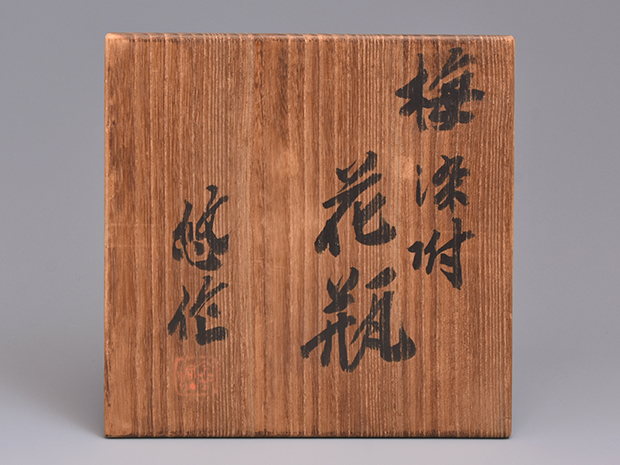 梅染附
花瓶
悠作